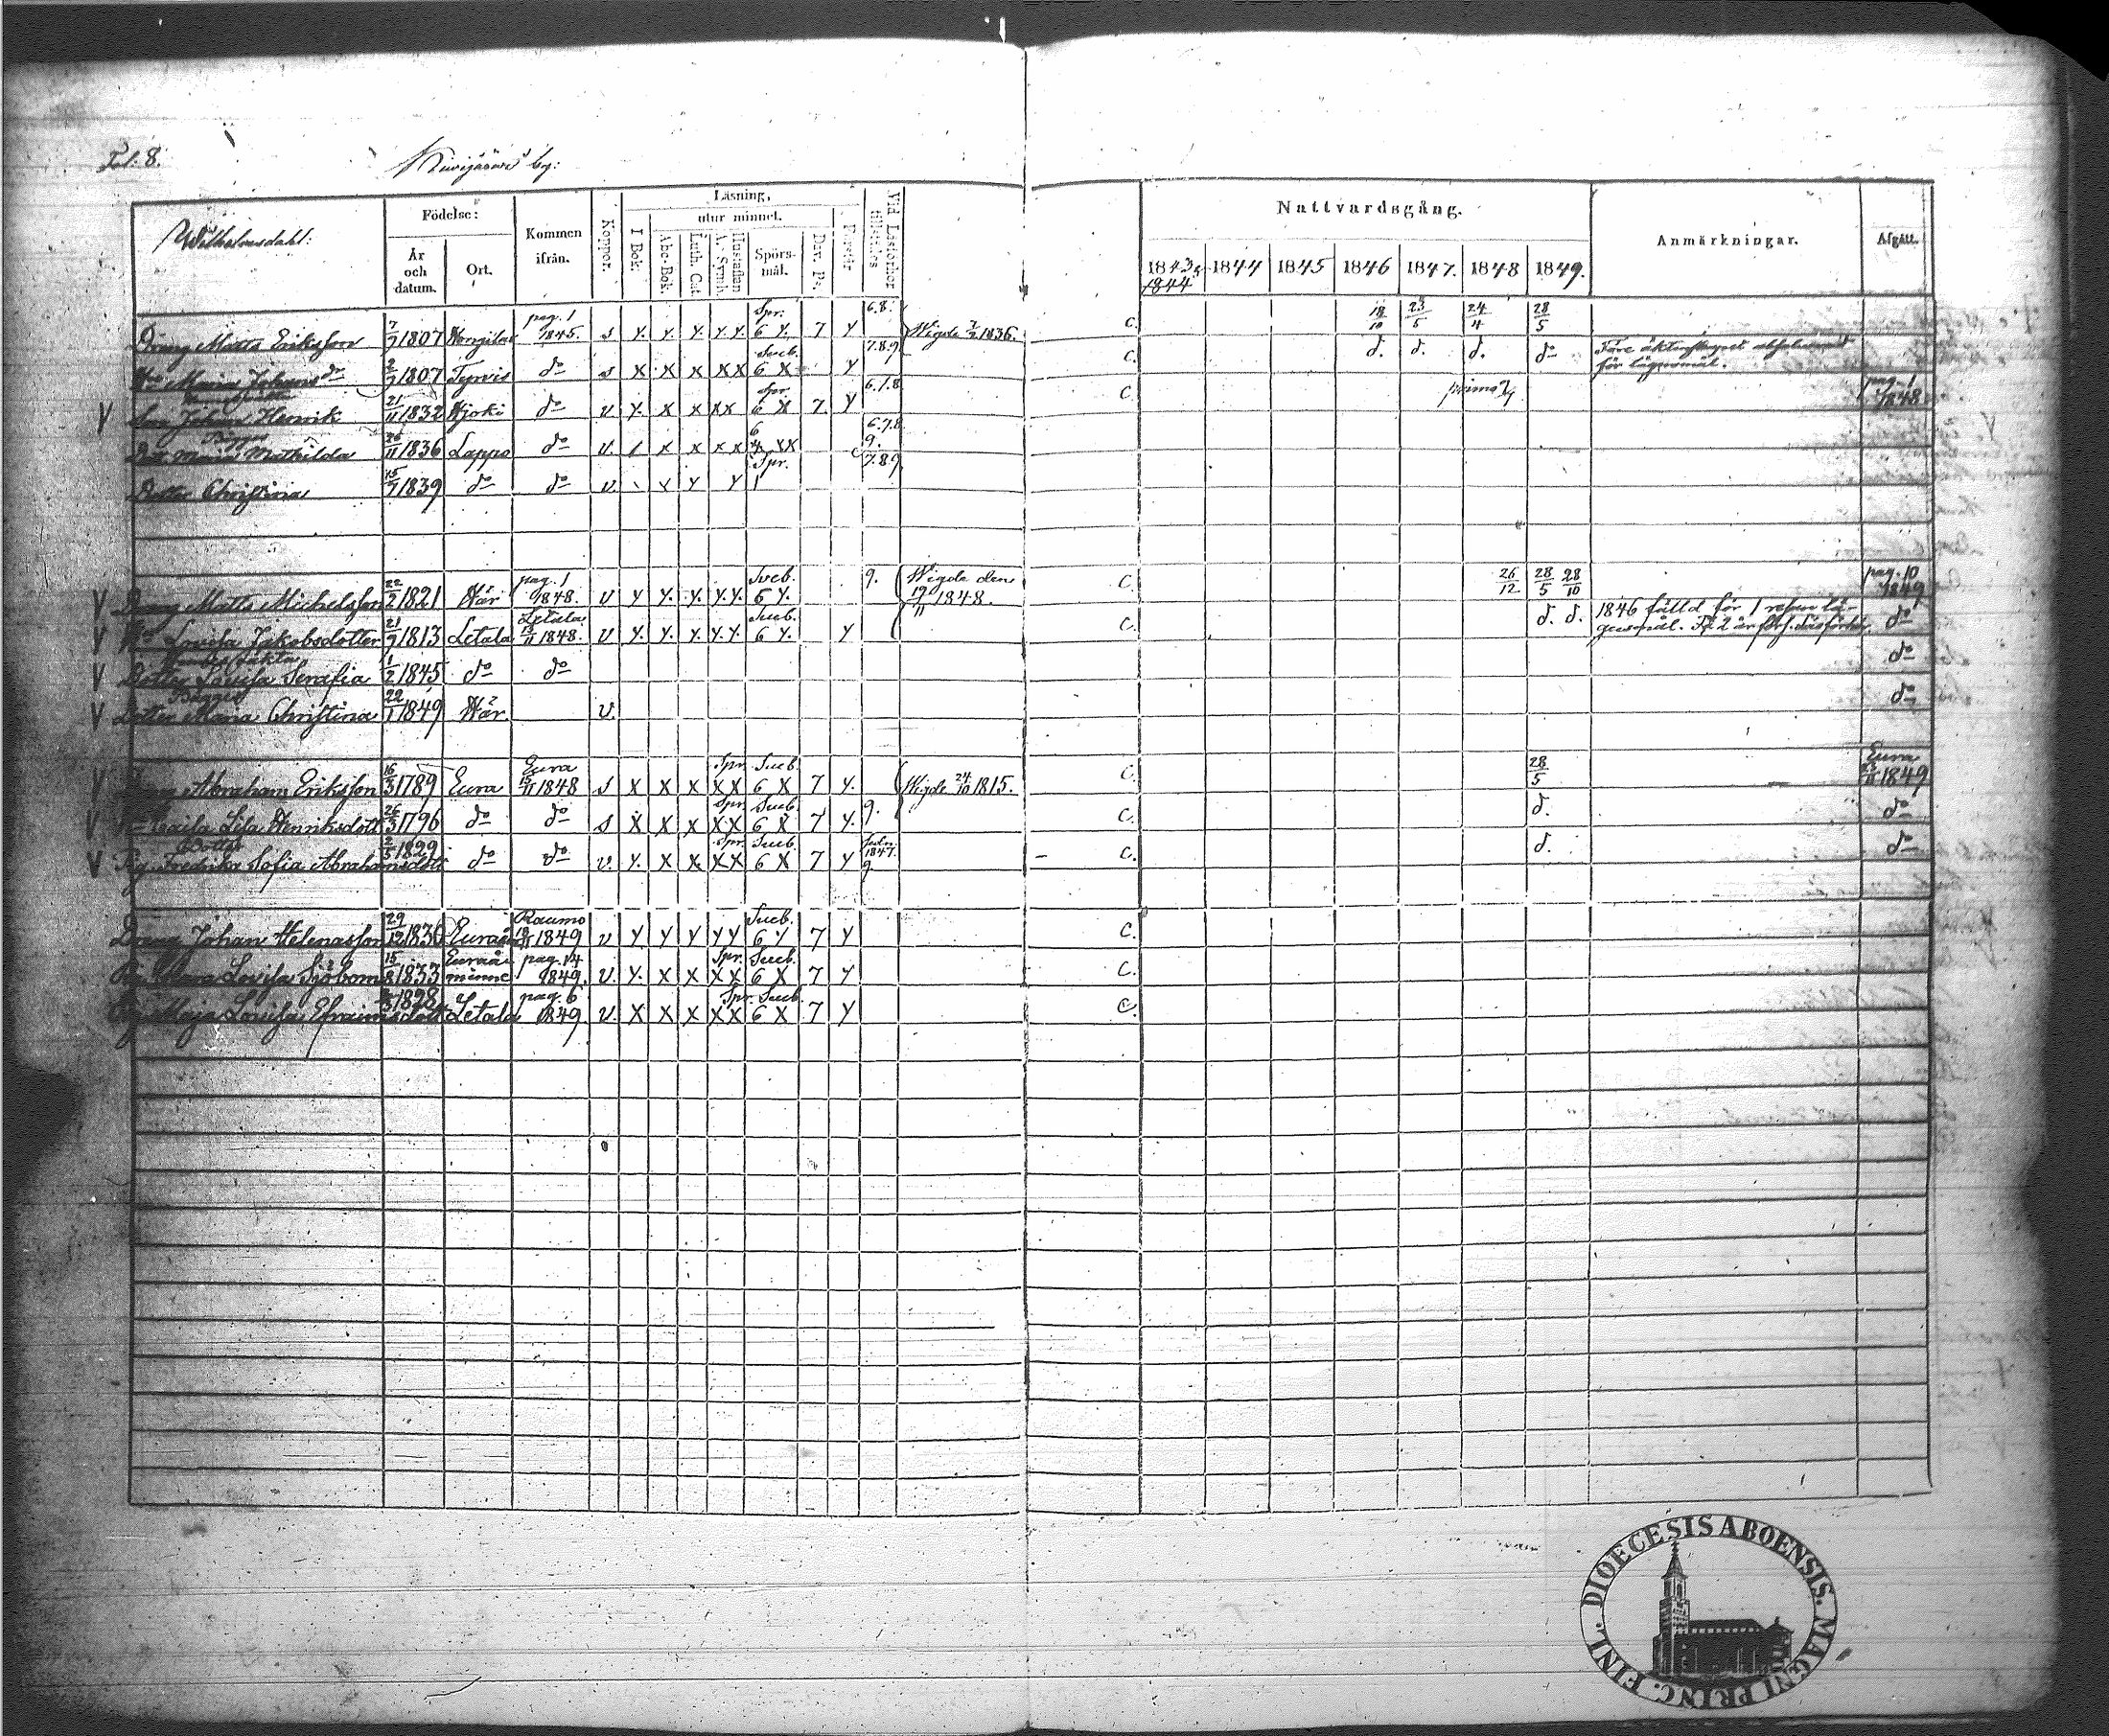 Fol: 8.
by:
Wilhelmsdahl:
Födelse:
År och datum.
Ort.
Kommen ifrån.
Koppor.
Läsning,
I Bok.
utur minnet.
Abc-Bok.
Luth. Cat.
A. Symb.
Hustaflan
Spörsmål.
Dav. Ps.
Förstår
Vid Läsförhör
Nattvardsgång.
1843 1844
1844
1845
1846
1847.
1848
1849.
Anmärkningar.
Afgått.
Dräng Matts Eriksson 7/7 1807 pag. 1 1845. s y. y. y. y. y. Spr: 6 y. 7 y 6.8. Wigde 1836. c. 18/10 23/5 24/4 28/5
Maria Johans dr 2/7 1807 Tyrvis do s x x x x x Sveb. 6 x y 7.8.9 c. d. d. d. do Före äktenskapet
för lägersmål.
V Son Johan Henrik 21/11 1832 Hjoki do v. y. x x x x Spr 6 x 7. y 6.7.8 c primo pag. 1 1848
Dott. Maria Mathilda 26/11 1836 Lappo do v. x x x x 6.7.8 9.
Dotter Christina 15/7 1839 do do v. Spr. 7.8.9
V Dräng Matts Michelsson 22/2 1821 Här pag. 1 1848. v y y. y. y. y. Sveb. 6 y. 9. Wigde den 19/11 1848. c. 26/12 28/5 28/10 pag. 10 1849
V Hu Lovisa Jakobsdotter 21/9 1813 Letala Letala 13/11 1848. v y. y. y. y. y. Sveb. 6 y. y c. d. d. 1846 fälld för 1 resan lä-
gersmål. do
V Dotter Lovisa Serafia 1/2 1845 do do do
V Dotter Maria Christina 22/1 1849 Här. v. do
V Dräng Abraham Eriksson 16/3 1789 Eura Eura 15/11 1848 s x x x x x Spr Sveb 6 x 7 y. Wigde 24/10 1815. c. 28/5 Eura 1849
V Hu Caisa Lisa Henriksdott 26/3 1796 do do s x x x x x Spr Sveb 6 x 7 y. 9. c. d. do
V Pig. Fredrika Sofia Abrahamsdott 2/5 1829 do do v. y. x x x x Spr. Sveb. 6 x 7 y 1847. 9 c. d. do
Dräng Johan Helenasson 29/12 1830 Raumo 1849 v y. y y y y Sveb. 6 y 7 y c.
Pig. Clara Lovisa Sjöbom 15/8 1833 Euraåminne pag. 14 1849. v. y. x x x x Spr. Sveb. 6 x 7 y c.
Pig. Maja Lovisa Efraimsdott 1828 Letala pag. 6 1849 v. x x x x x Spr. Sveb. 6 x 7 y c.
DIOECESIS ABOENSIS. MAGNI PRINC. FINL.